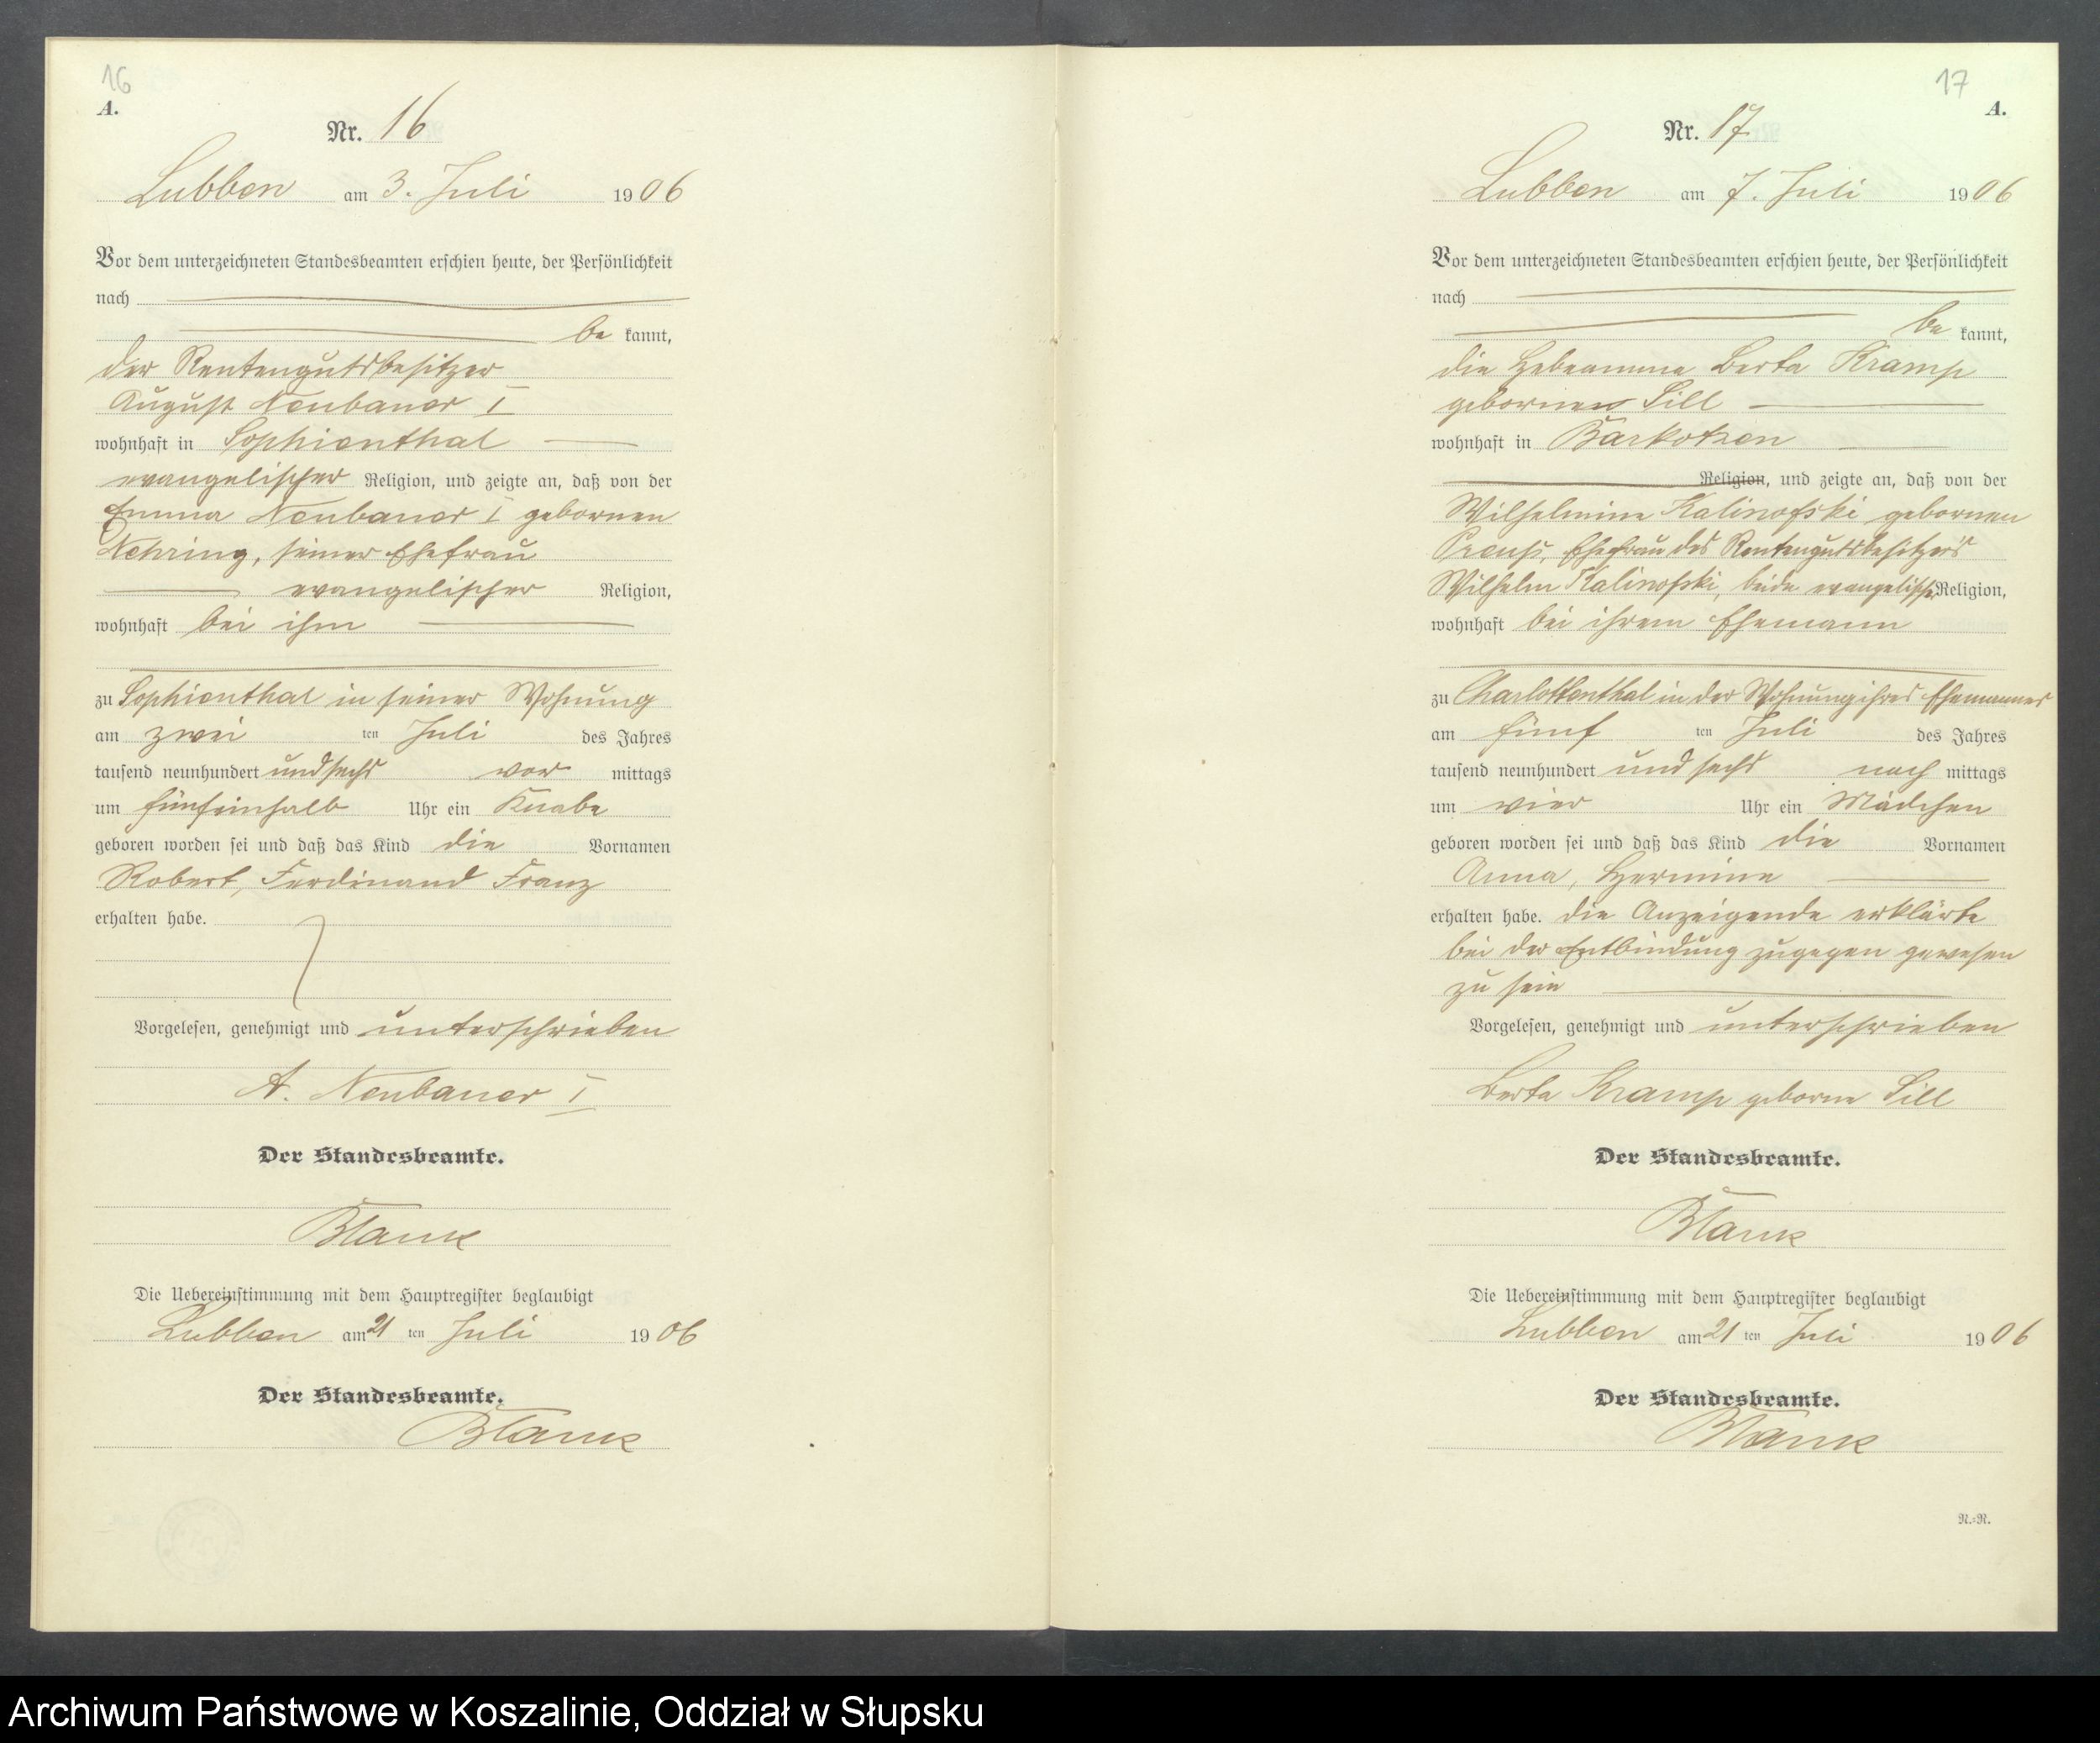 16
A.
Nr. 16
Lubben am 3. Juli 1906
Vor dem unterzeichneten Standesbeamten erschien heute, der Persönlichkeit
nach
be kannt,
der Rentengutsbesitzer
August Neubauer I
wohnhaft in Sophienthal
evangelischer Religion, und zeigte an, daß von der
Emma Neubauer I gebornen
Nehring, seiner Ehefrau
evangelischer Religion,
wohnhaft bei ihm
zu Sophienthal in seiner Wohnung
am zwei ten Juli des Jahres
tausend neunhundert und sechs vor mittags
um fünfeinhalb Uhr ein Knabe
geboren worden sei und daß das Kind die Vornamen
Robert, Ferdinand Franz
erhalten habe.
Vorgelesen, genehmigt und unterschrieben
A. Neubauer I
Der Standesbeamte.
Blank
Die Uebereinstimmung mit dem Hauptregister beglaubigt
Lubben am 21 ten Juli 1906
Der Standesbeamte.
Blank
17
A.
Nr. 17
Lubben am 7. Juli 1906
Vor dem unterzeichneten Standesbeamten erschien heute, der Persönlichkeit
nach
be kannt,
die Hebeamme Berta Kramp
gebornen Sill
wohnhaft in Barkotzen
Religion, und zeigte an, daß von der
Wilhelmine Kalinofski gebornen
Preuß, Ehefrau des Rentengutsbesitzers
Wilhelm Kalinofski, beide evangelischer Religion,
wohnhaft bei ihrem Ehemann
zu Charlottenthal in der Wohnung ihres Ehemannes
am fünf ten Juli des Jahres
tausend neunhundert und sechs nach mittags
um vier Uhr ein Mädchen
geboren worden sei und daß das Kind die Vornamen
Anna, Hermine
erhalten habe. die Anzeigende erklärte
bei der Entbindung zugegen gewesen
zu sein
Vorgelesen, genehmigt und unterschrieben
Berta Kramp geborne Sill
Der Standesbeamte.
Blank
Die Uebereinstimmung mit dem Hauptregister beglaubigt
Lubben am 21 ten Juli 1906
Der Standesbeamte.
Blank
R.=R.
Archiwum Państwowe w Koszalinie, Oddział w Słupsku